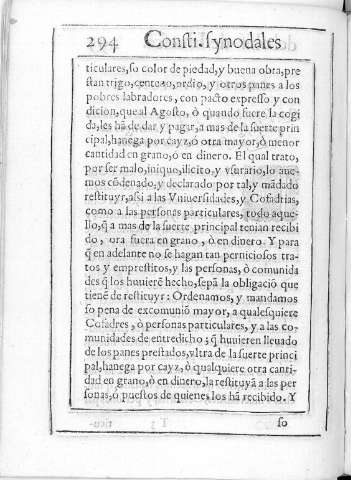 294 Consti. synodales
ticulares, so color de piedad, y buena obra, pre
stan trigo, centeno, ordio, y otros panes a los
pobres labradores, con pacto expresso y con
dicion, que al Agosto, ò quando fuere la cogi
da, les hã de dar y pagar, a mas de la suerte prin
cipal, hanega por cayz, ò otra mayor, ò menor
cantidad en grano, ò en dinero. El qual trato,
por ser malo, iniquo, ilicito, y vsurario, lo aue-
mos cõdenado, y declarado por tal, y mãdado
restituyr, assi a las Vniuersidades, y Cofadrias,
como a las personas particulares, todo aque-
llo, q̃ a mas de la suerte principal tenian recibi
do, ora fuera en grano, ò en dinero. Y para
q̃ en adelante no se hagan tan perniciosos tra-
tos y emprestitos, y las personas, ò comunida
des q̃ los huuierẽ hecho, sepã la obligaciõ que
tienẽ de restituyr: Ordenamos, y mandamos
so pena de excomuniõ mayor, a qualesquiere
Cofadres, ò personas particulares, y a las co-
munidades de entredicho; q̃ huuieren lleuado
de los panes prestados, vltra de la suerte princi
pal, hanega por cayz, ò qualquiere otra canti-
dad en grano, ò en dinero, la restituyã a las per
sonas, ò puestos de quienes los hã recibido. Y
so